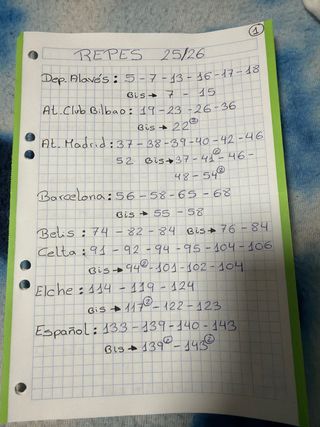 1
REPES 25/26
Dep. Alavés: 5-7-13-16-17-18
Bis→ 7 - 15
At. Club Bilbao: 19-23-26-36
Bis→ 22②
At. Madrid: 37-38-39-40-42-46
52 Bis→37-41②-46-
48-54②
Barcelona: 56-58-65-68
Bis→ 55-58
Betis: 74-82-84 Bis→76-84
Celta: 91-92-94-95-104-106
Bis→94②-101-102-104
Elche: 114-119-124
Bis→117②-122-123
Español: 133-139-140-143
Bis→ 139②-143②